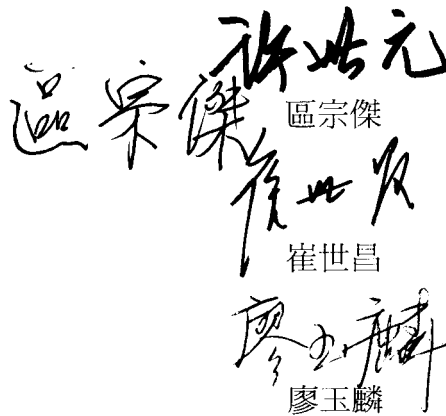 許世元
區宗傑
區宗傑
崔世昌
崔世昌
廖玉麟
廖玉麟